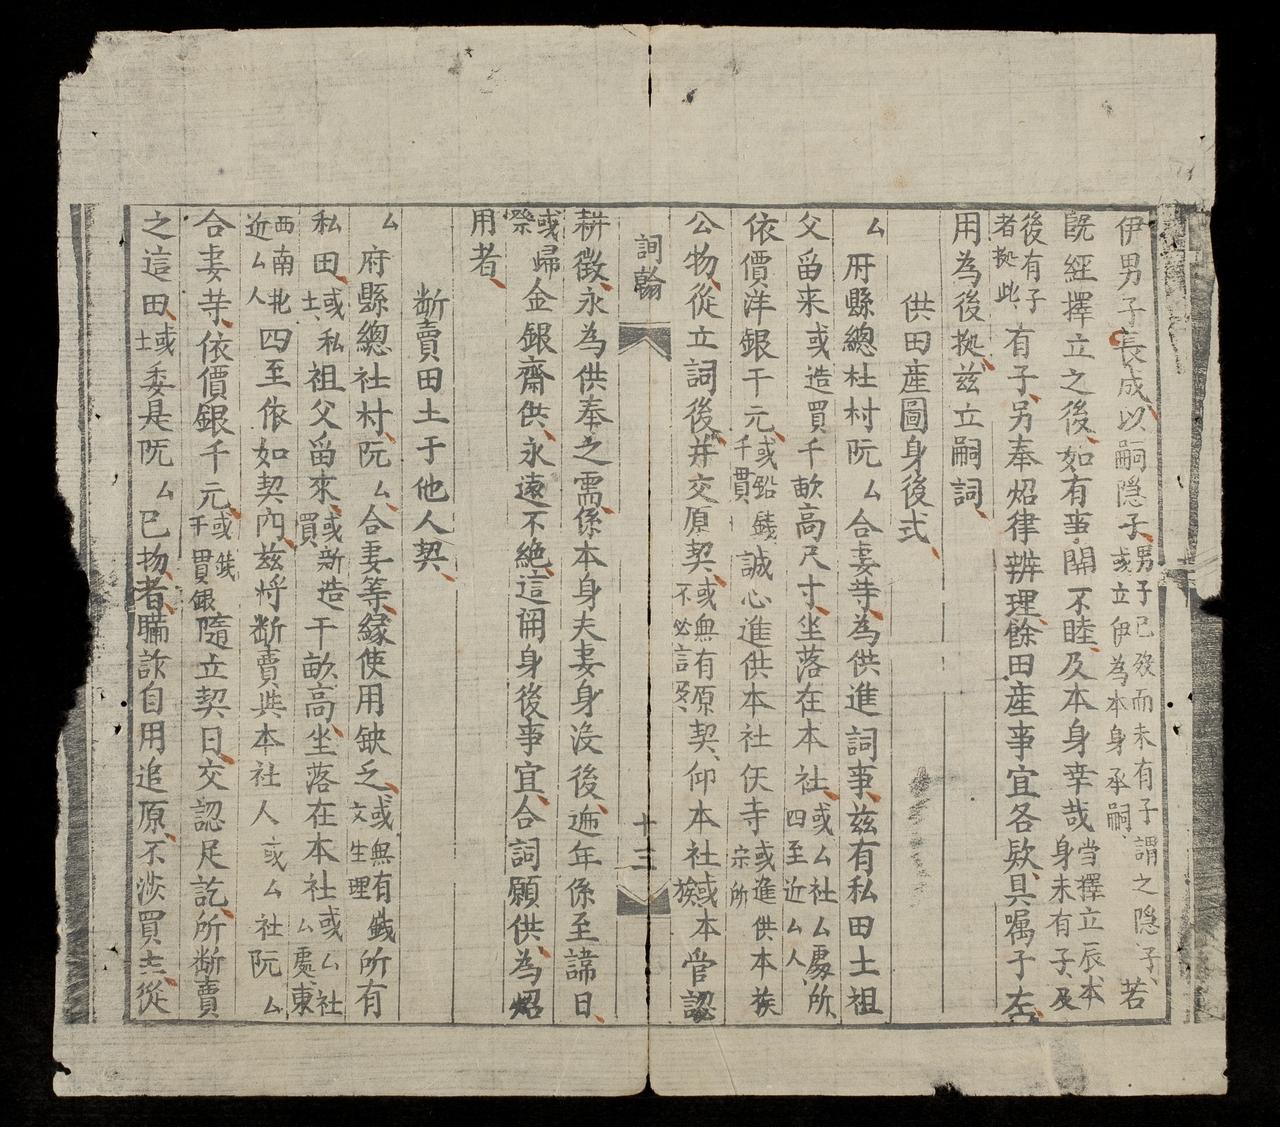 伊男子長成以嗣隐子男子已歿而未有子謂之隐子或立伊為本身承嗣若
既經擇立之後如有事関不睦及本身幸哉当擇立辰本身未有子及
後有子者拠此有子另奉炤律辨理餘田産事宜各欵具嘱子左
用為後拠兹立嗣詞
供田産圖身後式
厶府縣總社村阮厶合妻等為供進詞事兹有私田土祖
父畄来或造買千畝高尺寸坐落在本社或厶社厶處所四至近厶人
依價洋銀干元或鉛錢千貫誠心進供本社仸寺或進供本族宗所
公物從立詞後并交原契或無有原契不必言及仰本社或本族官認
詞翰 十三
耕徵永為供奉之需係本身夫妻身没後遞年係至諱日
或祭歸金銀齋供永遠不絶這開身後事宜合詞願供為炤
用者
断賣田土于他人契
厶府縣總社村阮厶合妻等緣使用缺乏或無有錢文生理所有
私田或土私祖父畄來或新造買干畝高坐落在本社或厶社厶處東
西南北近厶人四至依如契内兹将断賣与本社人或厶社阮厶
合妻等依價銀千元或錢千貫銀隨立契日交認足訖所断賣
之這田或土委是阮厶已物者瞞詐自用追原不涉買主從